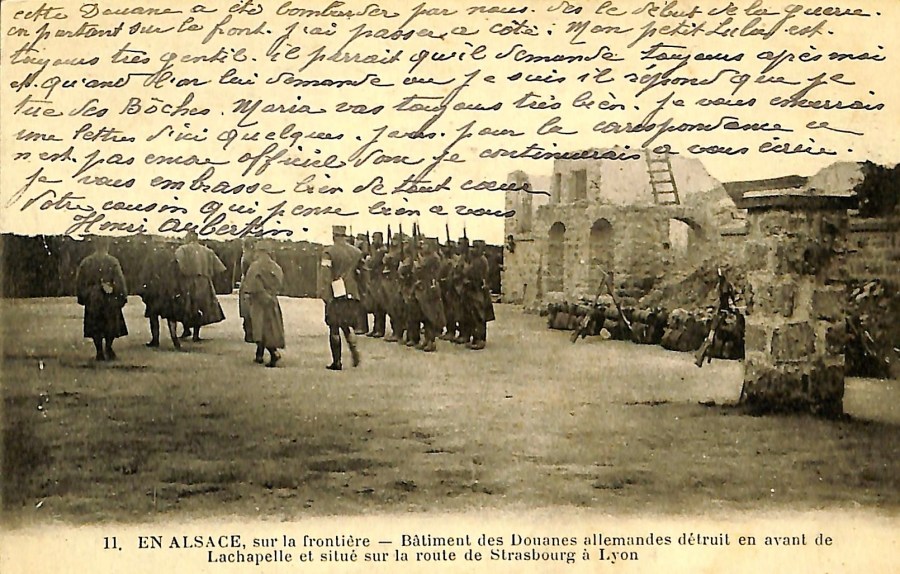 cette Douane a été bombarder par nous. des le début de la guerre.
en partant sur le front. j'ai passer a coté. Mon petit Lulu est.
toujours très gentil. il parrait qu'il demande toujours après moi
et. quand l'on lui demande ou je suis il répond que je
tue des Bôches. Maria vas toujours très bien. je vous enverrais
une lettres d'ici quelques. jours. pour la correspondance ce
n'est. pas encore officiel donc je continuerais a vous écrire.
je vous embrasse bien de tout cœur
Votre cousin qui pense bien a vous
Henri
11. EN ALSACE, sur la frontière — Bâtiment des Douanes allemandes détruit en avant de
Lachapelle et situé sur la route de Strasbourg à Lyon